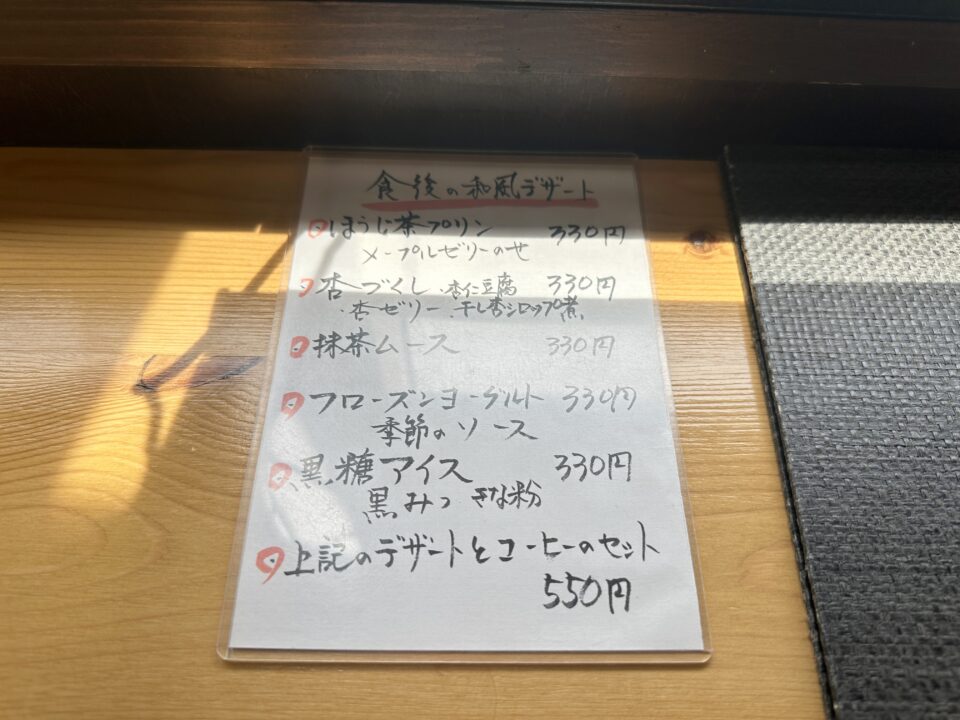 食後の和風デザート
ほうじ茶プリン 330円
メープルゼリーのせ
杏づくし ・杏仁豆腐 330円
・杏ゼリー ・干し杏シロップ煮
抹茶ムース 330円
フローズンヨーグルト 330円
季節のソース
黒糖アイス 330円
黒みつ きな粉
上記のデザートとコーヒーのセット
550円